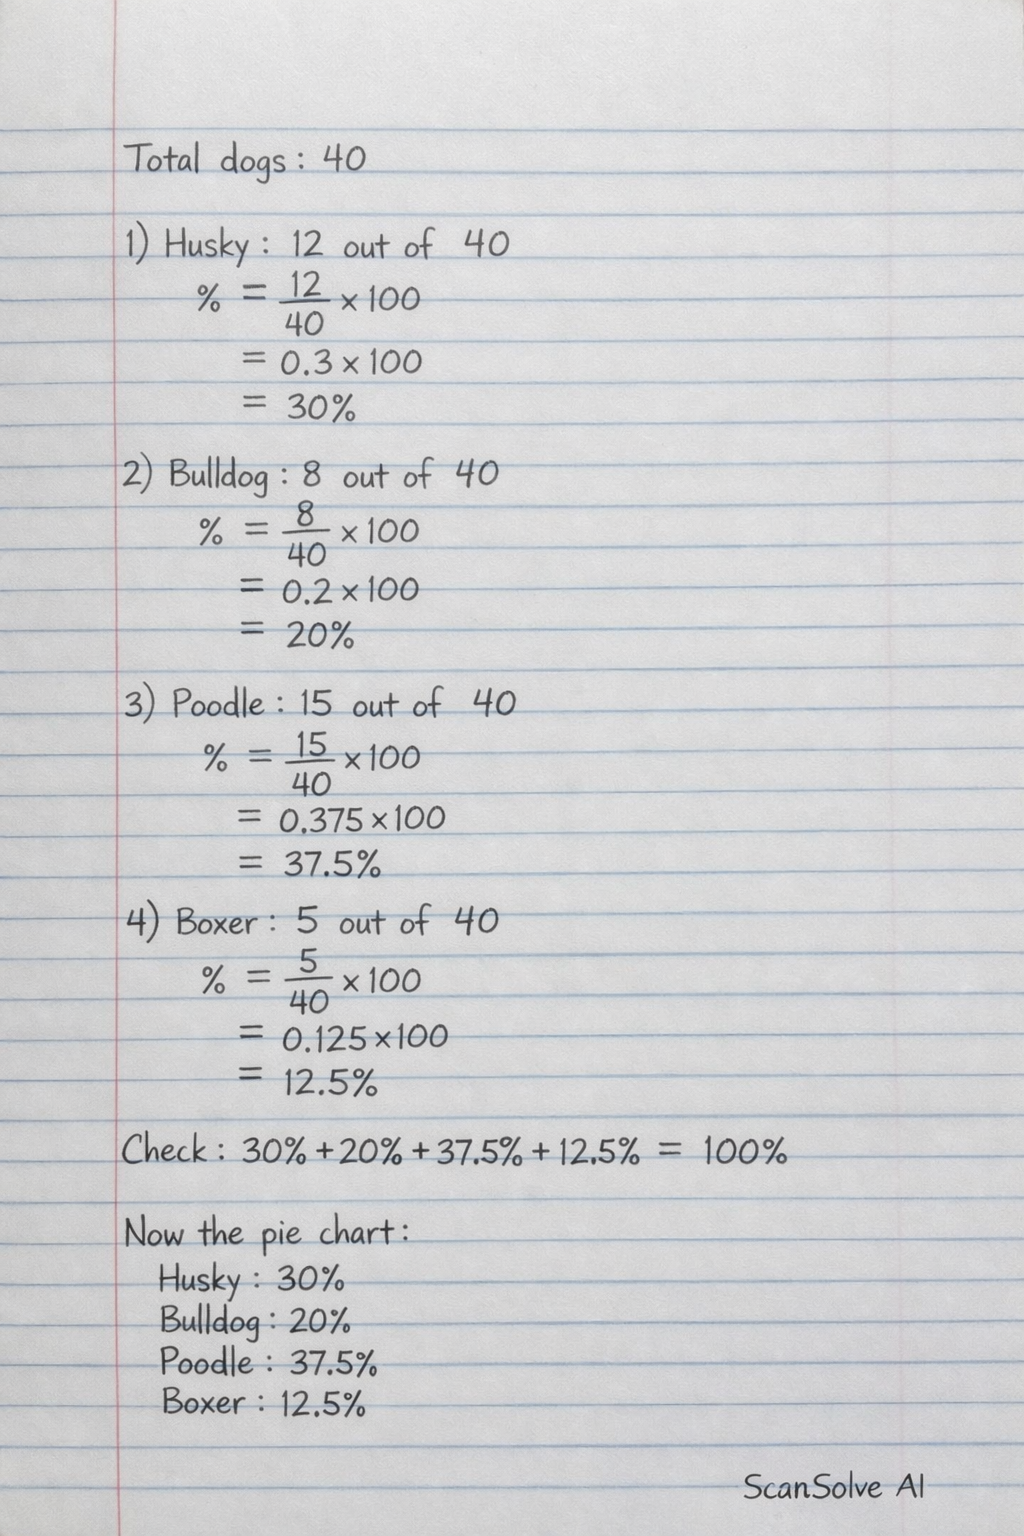 Total dogs: 40
1) Husky: 12 out of 40
% = 12/40 × 100
= 0.3 × 100
= 30%
2) Bulldog: 8 out of 40
% = 8/40 × 100
= 0.2 × 100
= 20%
3) Poodle: 15 out of 40
% = 15/40 × 100
= 0.375 × 100
= 37.5%
4) Boxer: 5 out of 40
% = 5/40 × 100
= 0.125 × 100
= 12.5%
Check: 30% + 20% + 37.5% + 12.5% = 100%
Now the pie chart:
Husky: 30%
Bulldog: 20%
Poodle: 37.5%
Boxer: 12.5%
ScanSolve AI